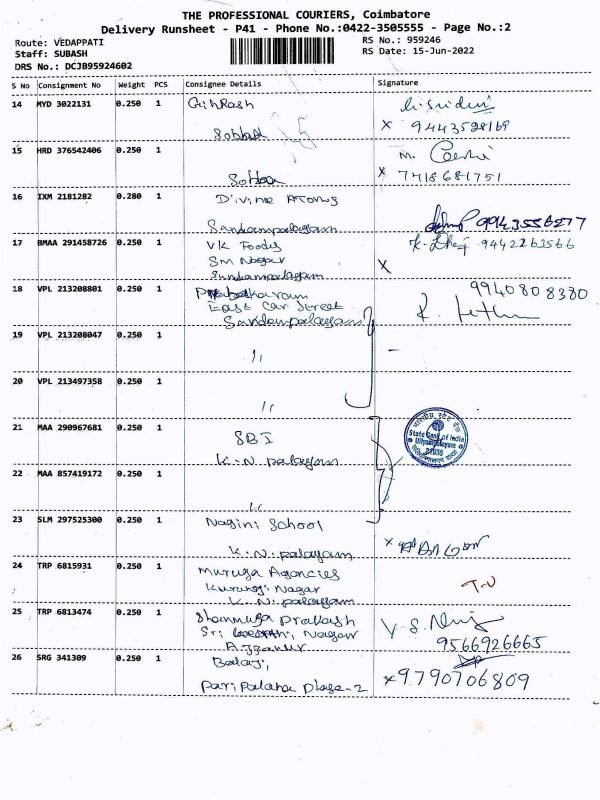 THE PROFESSIONAL COURIERS, Coimbatore
Delivery Runsheet - P41 - Phone No.:0422-3505555 - Page No.:2
Route: VEDAPPATI
Staff: SUBASH
DRS No.: DCJB95924602
RS No.: 959246
RS Date: 15-Jun-2022
S No Consignment No Weight PCS Consignee Details Signature
14 MYD 3022131 0.250 1
x 9443528169
15 HRD 376542406 0.250 1 M.
x 7418681751
16 IXM 2181282 0.280 1 Divine Atoms
Sundampalayam 9943556277
17 BMAA 291458726 0.250 1 VK Foods 9442263566
SM Nagar
Sundampalayam x
18 VPL 213208801 0.250 1 9940808380
East Car Street
Sundampalayam
19 VPL 213208047 0.250 1
"
20 VPL 213497358 0.250 1
"
21 MAA 290967681 0.250 1 SBI
K.N. palayam
State Bank of India
22 MAA 857419172 0.250 1
"
23 SLM 297525300 0.250 1 Nagini School
K.N. palayam
24 TRP 6815931 0.250 1 Muruga Agencies
Kurunji Nagar
K.N. palayam
25 TRP 6813474 0.250 1 Shanmuga Prakash
Sri Nagar
9566926665
26 SRG 341309 0.250 1 Balaji
x 9790706809